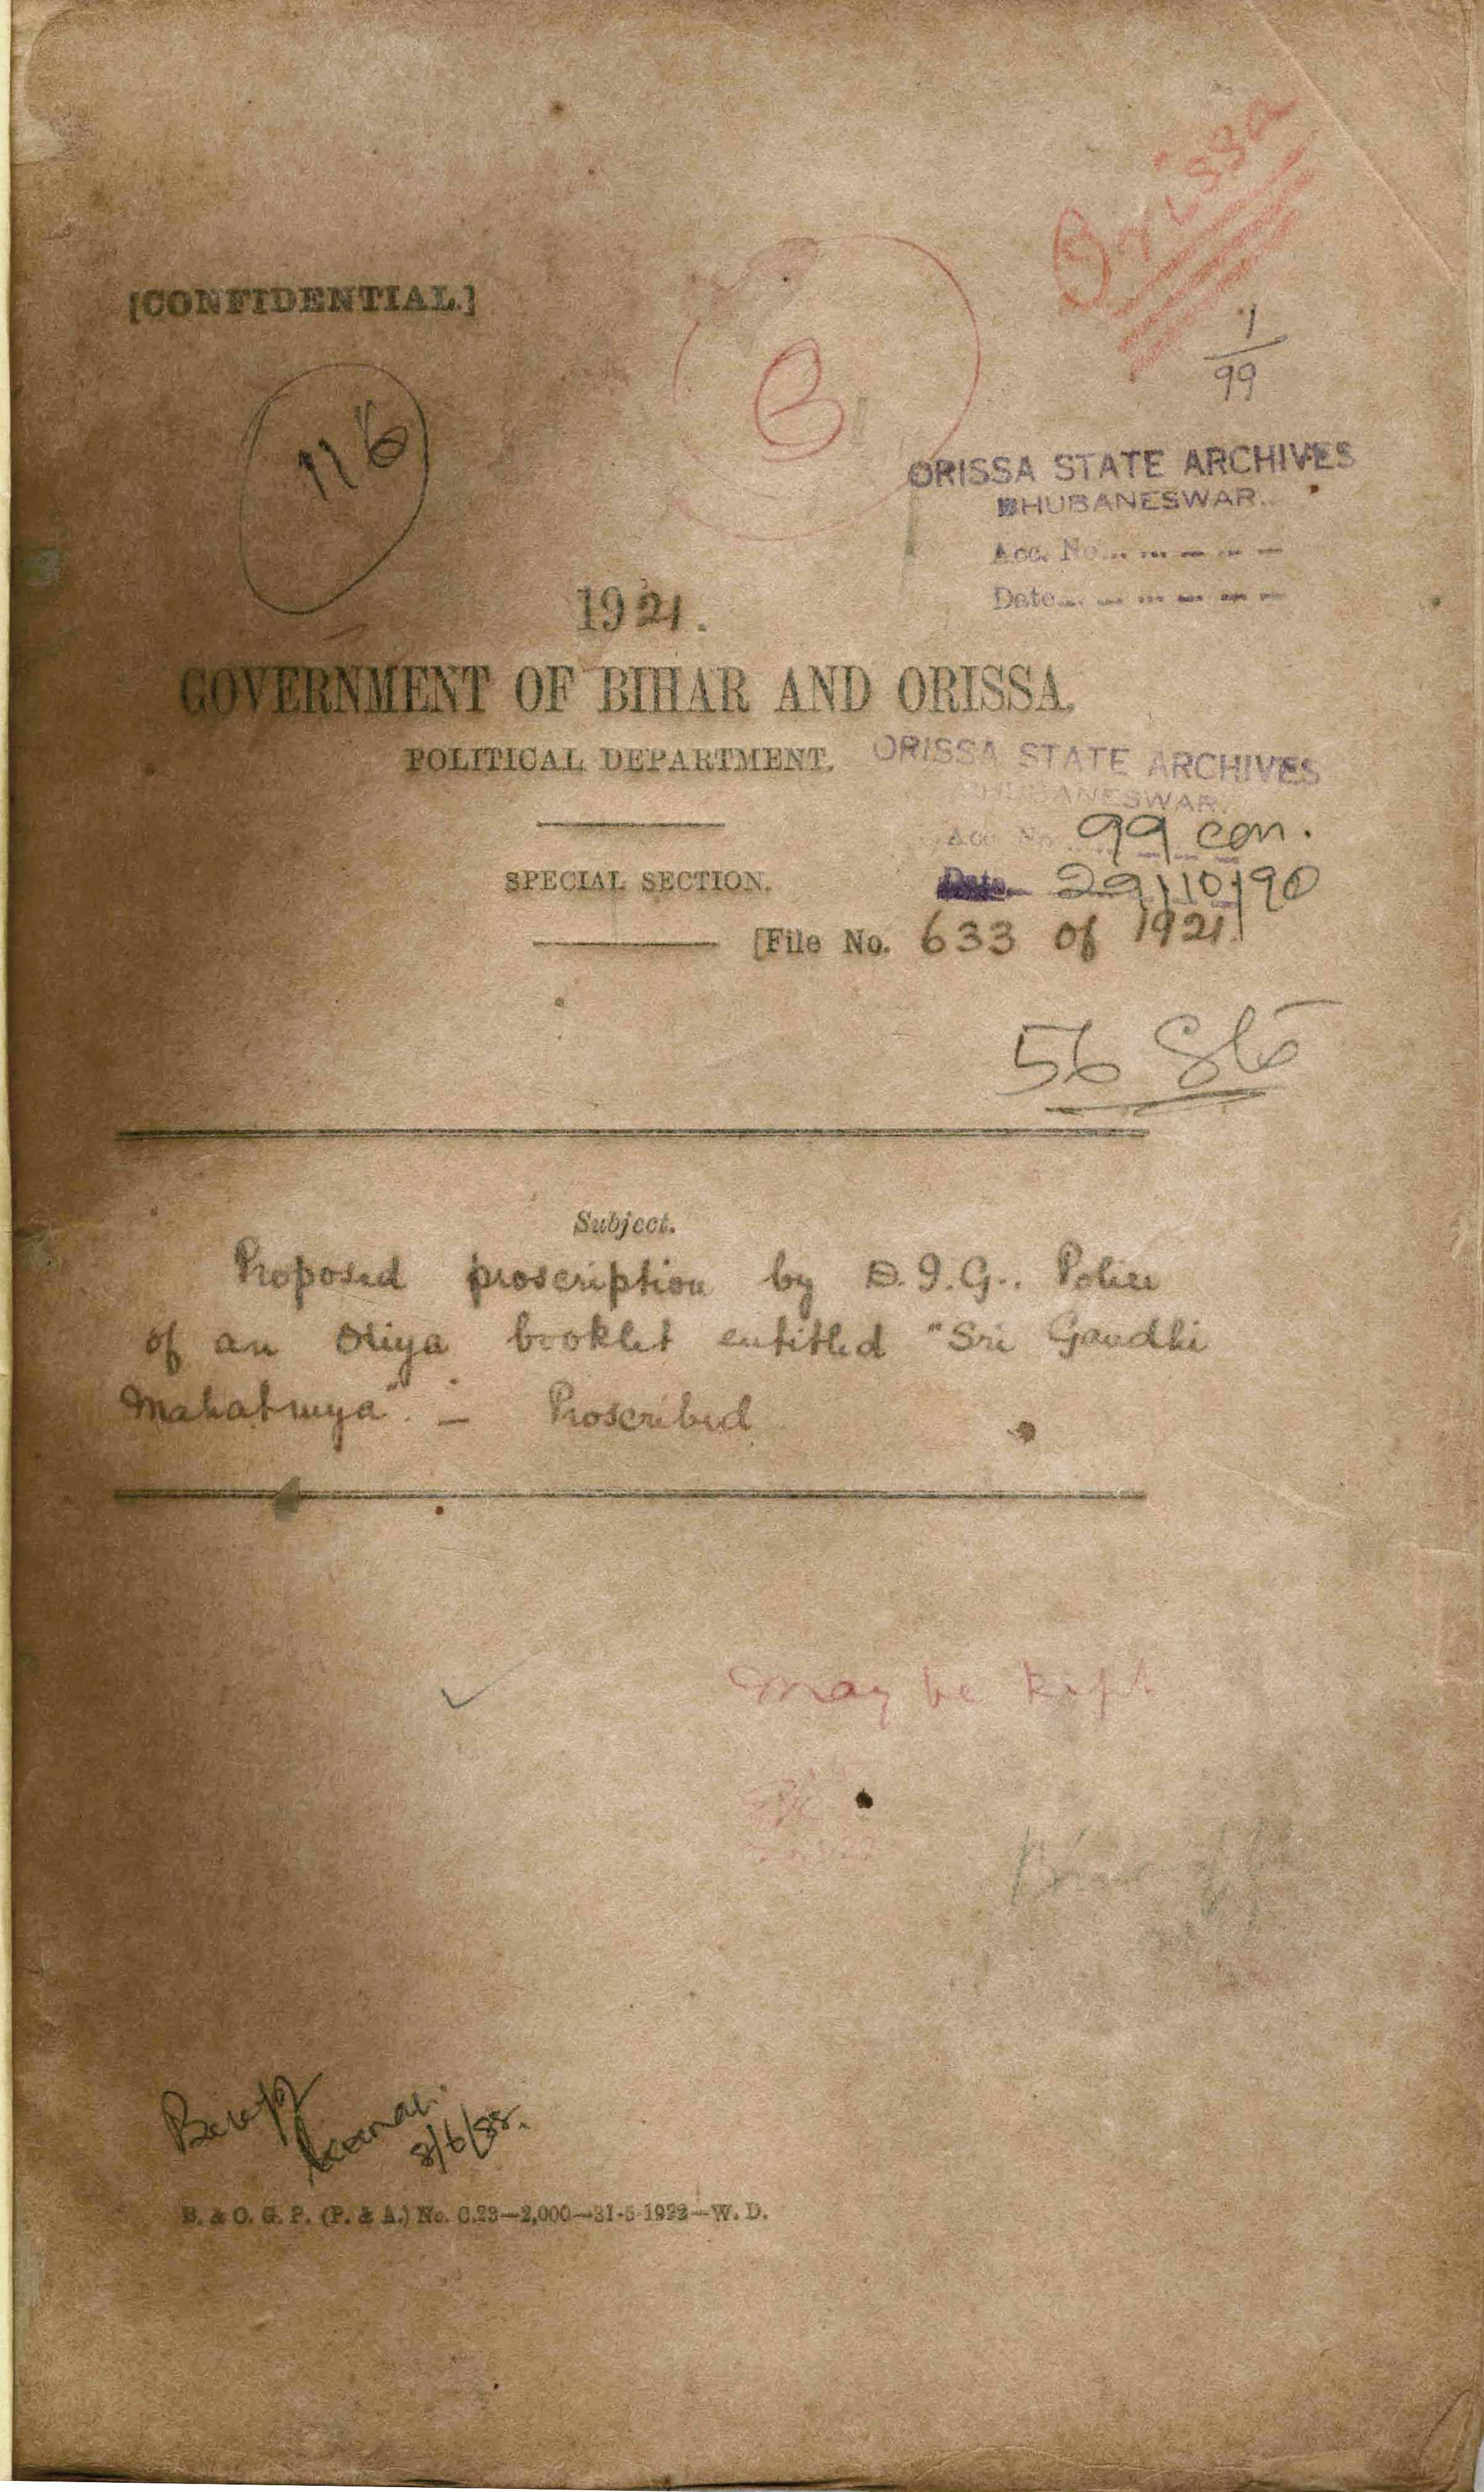 Orissa
[CONFIDENTIAL.]
116
B
1
99
ORISSA STATE ARCHIVES
BHUBANESWAR.
Acc. No.
Date
1921.
GOVERNMENT OF BIHAR AND ORISSA.
POLITICAL DEPARTMENT.
ORISSA STATE ARCHIVES
BHUBANESWAR.
Acc No 99 con.
Date 29/10/90
SPECIAL SECTION.
[File No. 633 of 1921]
56
Subject.
Proposed proscription by D.I.G., Police
of an Oriya booklet entitled "Sri Gandhi
Mahatmya". — Proscribed
May be kept
8/6/
B. & O. G. P. (P. & A.) No. C.23—2,000—31-5-1922—W. D.